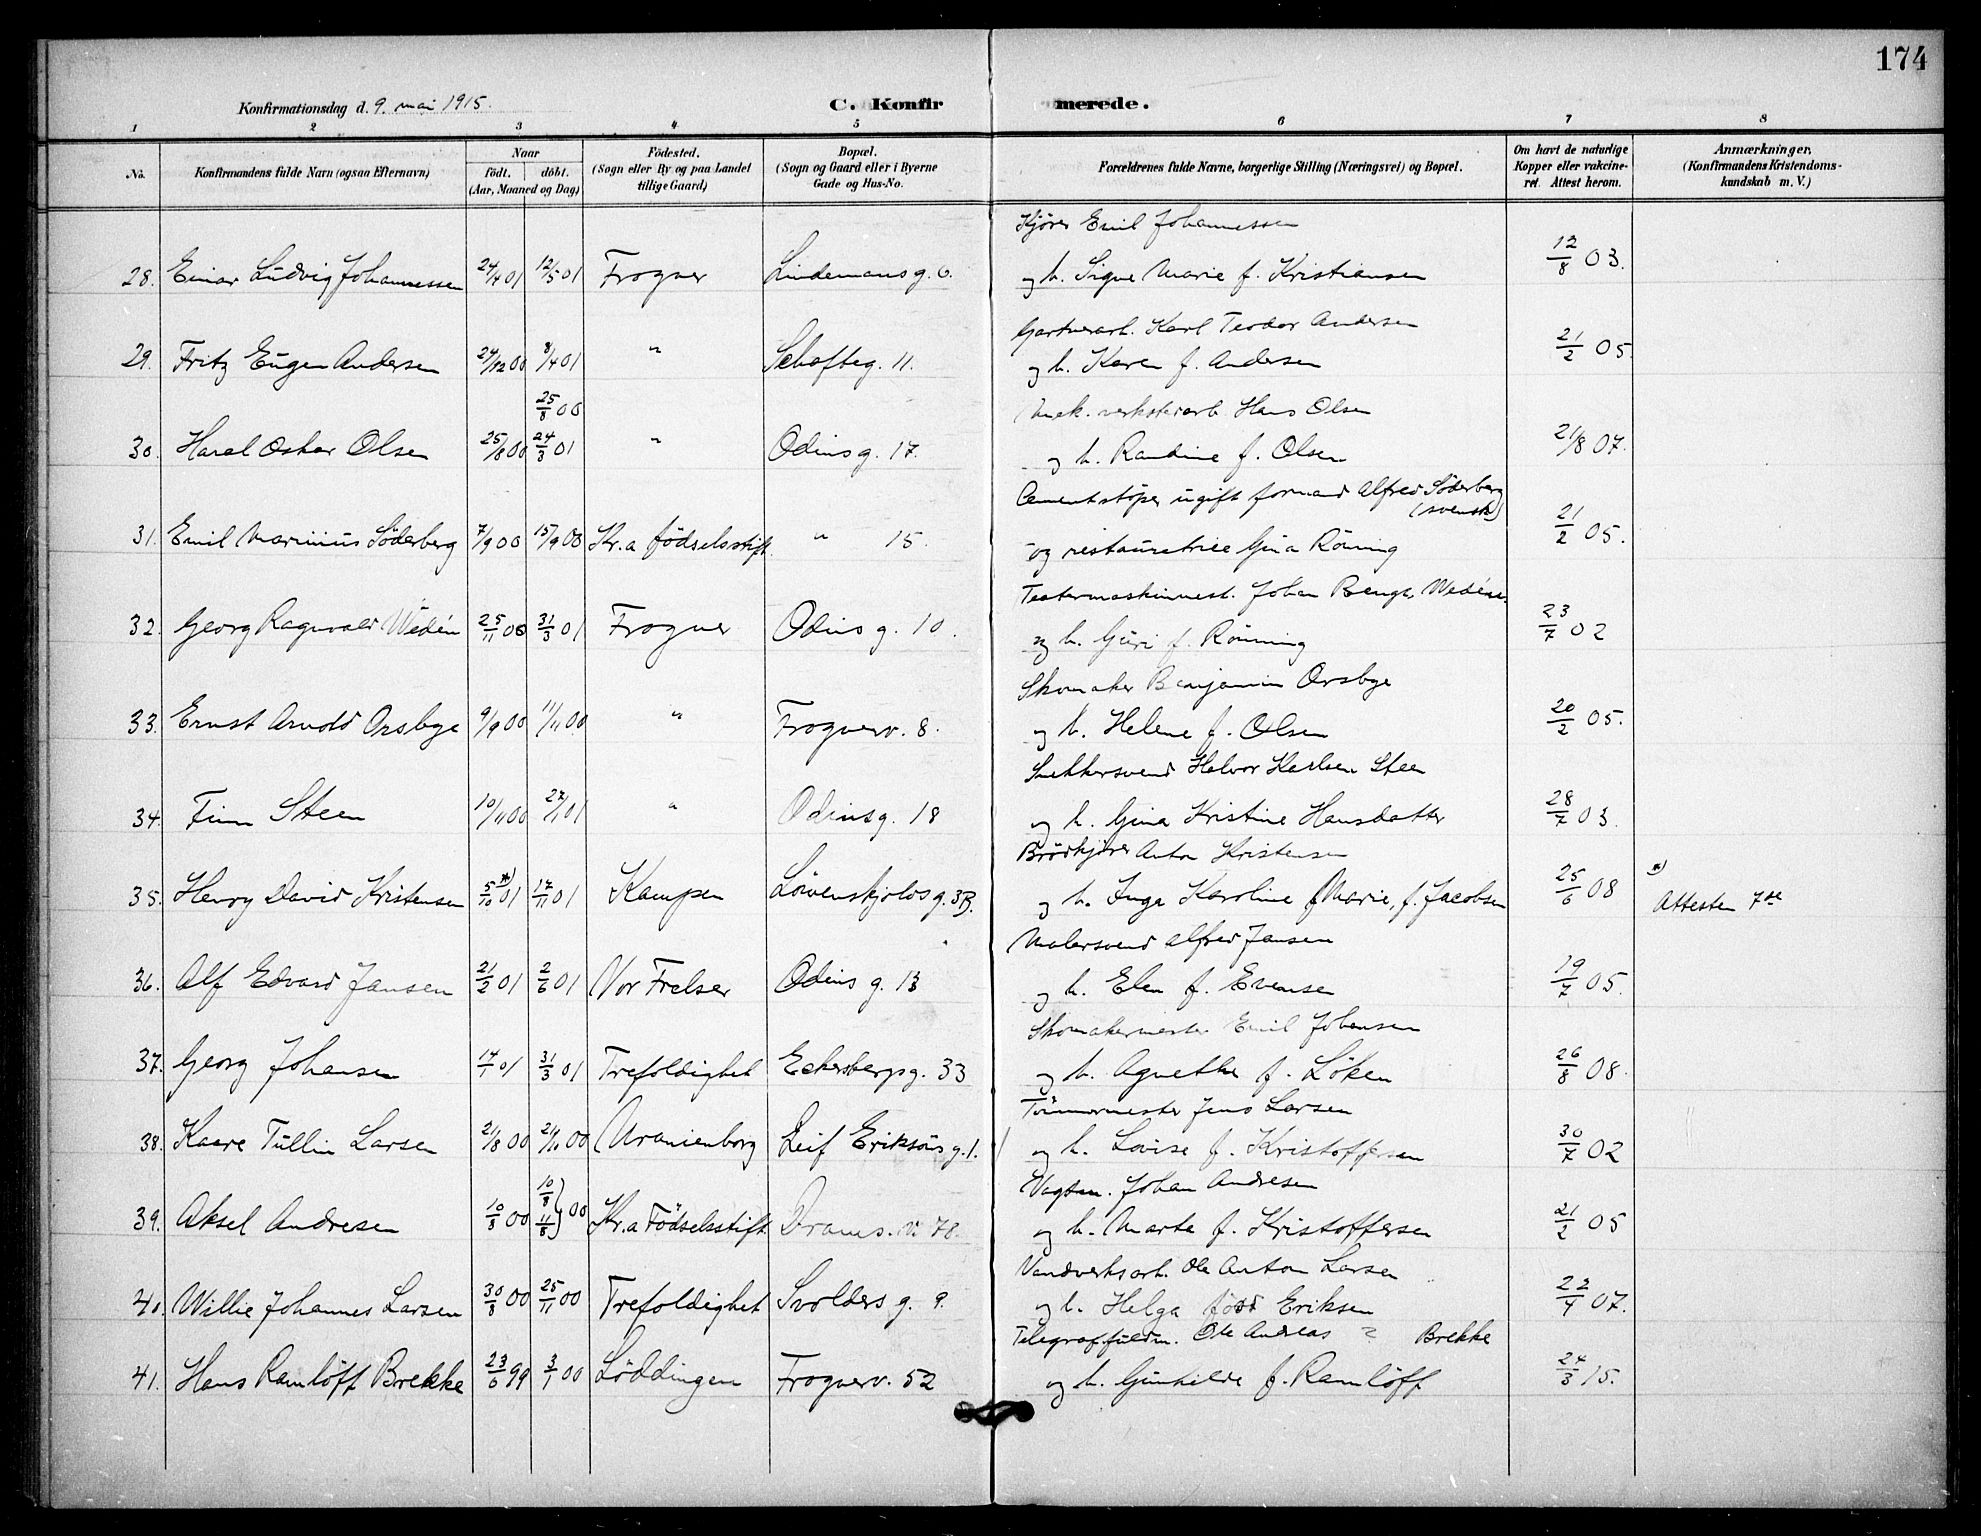 174
Konfirmationsdag d. 9. mai 1915.
C. Konfirmerede.
1 2 3 4 5 6 7 8
No.
Konfirmandens fulde Navn (ogsaa Efternavn)
Naar
født. døbt.
(Aar, Maaned og Dag)
Fødested.
(Sogn eller By og paa Landet
tillige Gaard)
Bopæl.
(Sogn og Gaard eller i Byerne
Gade og Hus-No.
Forældrenes fulde Navne, borgerlige Stilling (Næringsvei) og Bopæl.
Om havt de naturlige
Kopper eller vakcine-
ret. Attest herom.
Anmærkninger,
(Konfirmandens Kristendoms-
kundskab m. V.)
Kjører Emil Johannessen
28. Einar Ludvig Johannessen 24/4 01 12/5 01 Frogner Lindemans g. 6. og h. Signe Marie f. Kristiansen 12/8 03.
Gartnerarb. Karl Teodor Andersen
29. Fritz Eugen Andersen 24/12 00 8/4 01 " Schafteg. 11. og h. Karen f. Andersen 21/2 05
25/8 00 Mek. verkstedarb Hans Olsen
30. Haral Oskar Olsen 25/8 00 24/3 01 " Odins g. 17. og h. Randine f. Olsen 21/8 07.
Cementstöper ugift formand Alfred Söderberg
(svensk)
31. Emil Marinius Söderberg 7/9 00 15/9 00 Kr.a födselsstift. " 15. og restauratrice Gina Röning 21/2 05.
Teatermaskinmest. Johan Bengt. Wedén
32. Georg Ragnvald Wedén 25/11 00 31/3 01 Frogner Odins g. 10. og h. Guri f. Rönning 23/7 02
Skomaker Benjamin Orsbye
33. Ernst Arnold Orsbye 9/9 00 11/11 00 " Frognerv. 8. og h. Helene f. Olsen 20/2 05.
Snekkersvend Halvor Karlsen Steen
34. Finn Steen 10/11 00 27/1 01 " Odinsg. 18 og h. Gina Kristine Hansdatter 28/7 03.
Brødkjører Anton Kristensen
35. Henry David Kristensen 5/10 *) 01 17/11 01 Kampen Lövenskjolds g. 3B. og h. Inga Karoline Marie, f. Jacobsen 25/6 08 *) Attesten 7de
Malersvend Alfred Jansen
36. Alf Edvard Jansen 21/2 01 2/6 01 Vor Frelser Odins g. 13 og h. Elen f. Evensen 19/7 05.
Skomakermester Emil Johansen
37. Georg Johansen 14/1 01 31/3 01 Trefoldighet Eckersbergsg. 33 og h. Agnethe f. Löken 26/8 08.
Tömmermester Jens Larsen
38. Kaare Tullin Larsen 21/8 00 21/10 00 Uranienborg Leif Eriksöns g. 1. og h. Lovise f. Kristoffersen 30/7 02
Vagtm. Johan Andresen
39. Aksel Andresen 10/8 00 10/8 11/8 } 00 Kr.a Födselsstift Drams. v. 78. og h. Marte f. Kristoffersen 21/2 05
Vandverksarb. Ole Anton Larsen
40. Willie Johannes Larsen 30/8 00 25/11 00 Trefoldighet Svolders g. 9. og h. Helga född Eriksen 22/7 07.
Telegraffuldm. Ole Andreas Brekke
41. Hans Ramlöff Brekke 23/6 99 3/1 00 Löddingen Frognerv. 52 og h. Gunhilde f. Ramlöff 24/3 15.